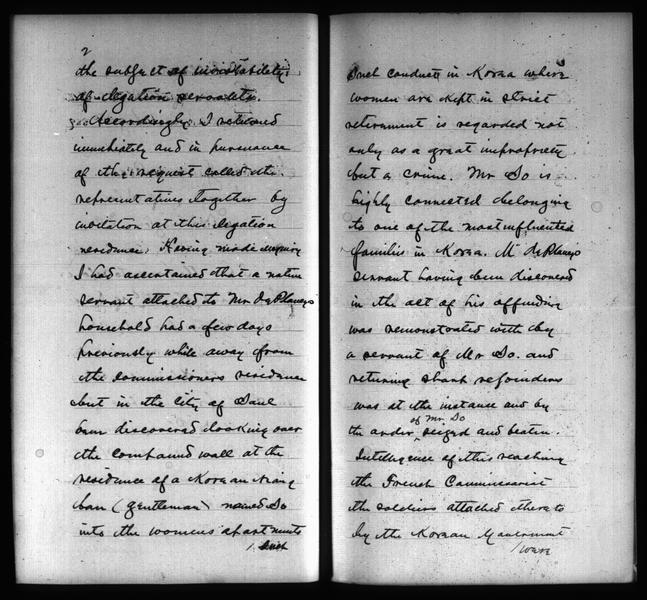 2
the subject of inviolability
of legation servants.
Accordingly I returned
immediately and in pursuance
of this request called the
representatives together by
invitation at this legation
residence. Having made inquiry
I had ascertained that a native
servant attached to Mr de Plancy's
household had a few days
previously while away from
the commissioners residence
but in the city of Saul
been discovered looking over
the compound wall at the
residence of a Korean Niang
ban (gentleman) named So
into the womens apartments
/. Such
3
Such conduct in Korea where
women are kept in strict
retirement is regarded not
only as a great impropriety
but a crime. Mr So is
highly connected belonging
to one of the most influential
families in Korea. Mr de Plancy's
servant having been discovered
in the act of his offending
was remonstrated with by
a servant of Mr So. and
returning sharp rejoinders
was at the instance and by
the order of Mr So seized and beaten.
Intelligence of this reaching
the French Commissariat
the soldiers attached thereto
by the Korean Government
/were